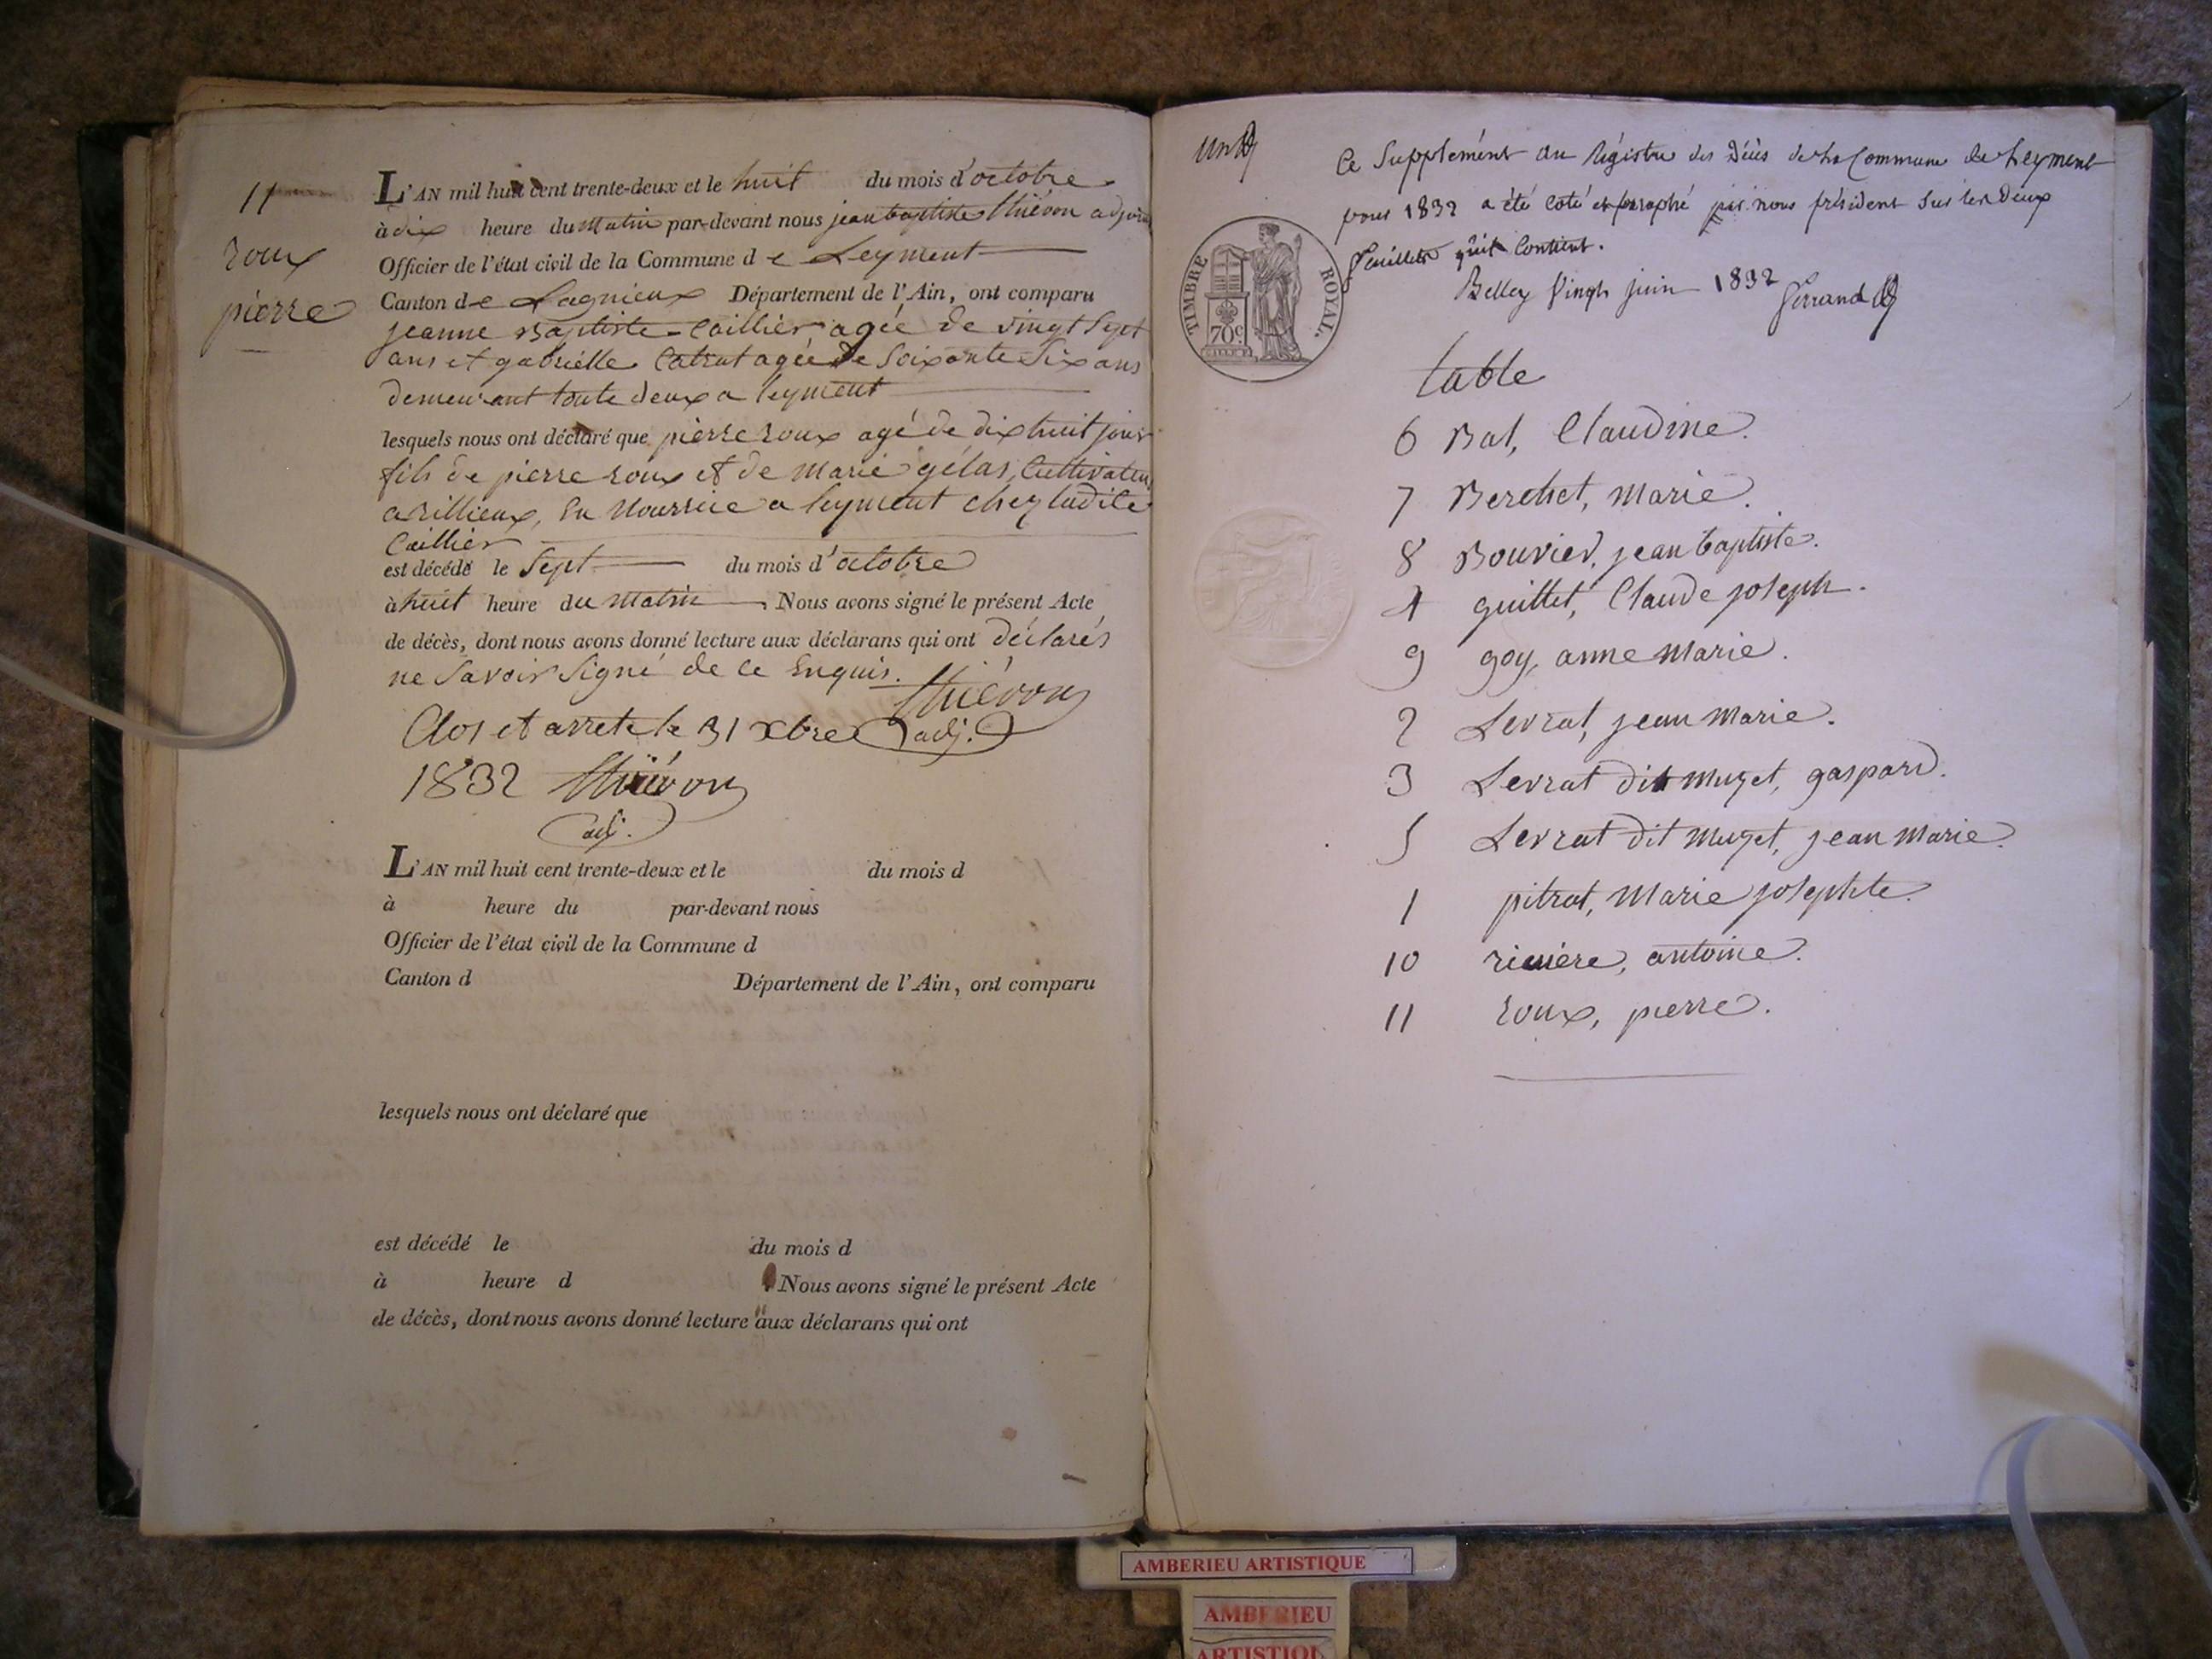 11
roux
pierre
L'AN mil huit cent trente-deux et le huit du mois d'octobre
à dix heure du matin par-devant nous jean baptiste thiévon adjoint
Officier de l'état civil de la Commune de Leyment
Canton de Lagnieux Département de l'Ain, ont comparu
jeanne Baptiste Caillier agée de vingt sept
ans et gabrielle Catrat agée de soixante six ans
demeurant toute deux a leyment
lesquels nous ont déclaré que pierre roux agé de dix huit jours
fils de pierre roux et de marie gélas, Cultivateurs
a rillieux, en nourrice a leyment chez ladite
Caillier
est décédé le sept du mois d'octobre
à huit heure du matin Nous avons signé le présent Acte
de décès, dont nous avons donné lecture aux déclarans qui ont déclarés
ne savoir signé de ce enquis. thiévon
Clos et arrete le 31 xbre adj.
1832 thiévon
adj.
L'AN mil huit cent trente-deux et le du mois d
à heure du par-devant nous
Officier de l'état civil de la Commune d
Canton d Département de l'Ain, ont comparu
lesquels nous ont déclaré que
est décédé le du mois d
à heure d Nous avons signé le présent Acte
de décès, dont nous avons donné lecture aux déclarans qui ont
un
Ce Supplément au Régistre des Décès de la Commune de Leyment
pour 1832 a été coté et paraphé par nous président sur les deux
feuillets qu'il contient.
Belley vingt juin 1832 ferrand
TIMBRE ROYAL.
70c.
table
6 Bal, Claudine.
7 Berchet, marie.
8 Bouvier, jean baptiste.
4 guillet, Claude joseph.
9 goy, anne marie.
2 Levrat, jean marie.
3 Levrat dit muzet, gaspard.
5 Levrat dit muzet, jean marie.
1 pitrat, marie josephte.
10 rivière, antoine.
11 roux, pierre.
AMBERIEU ARTISTIQUE
AMBERIEU
ARTISTIQU